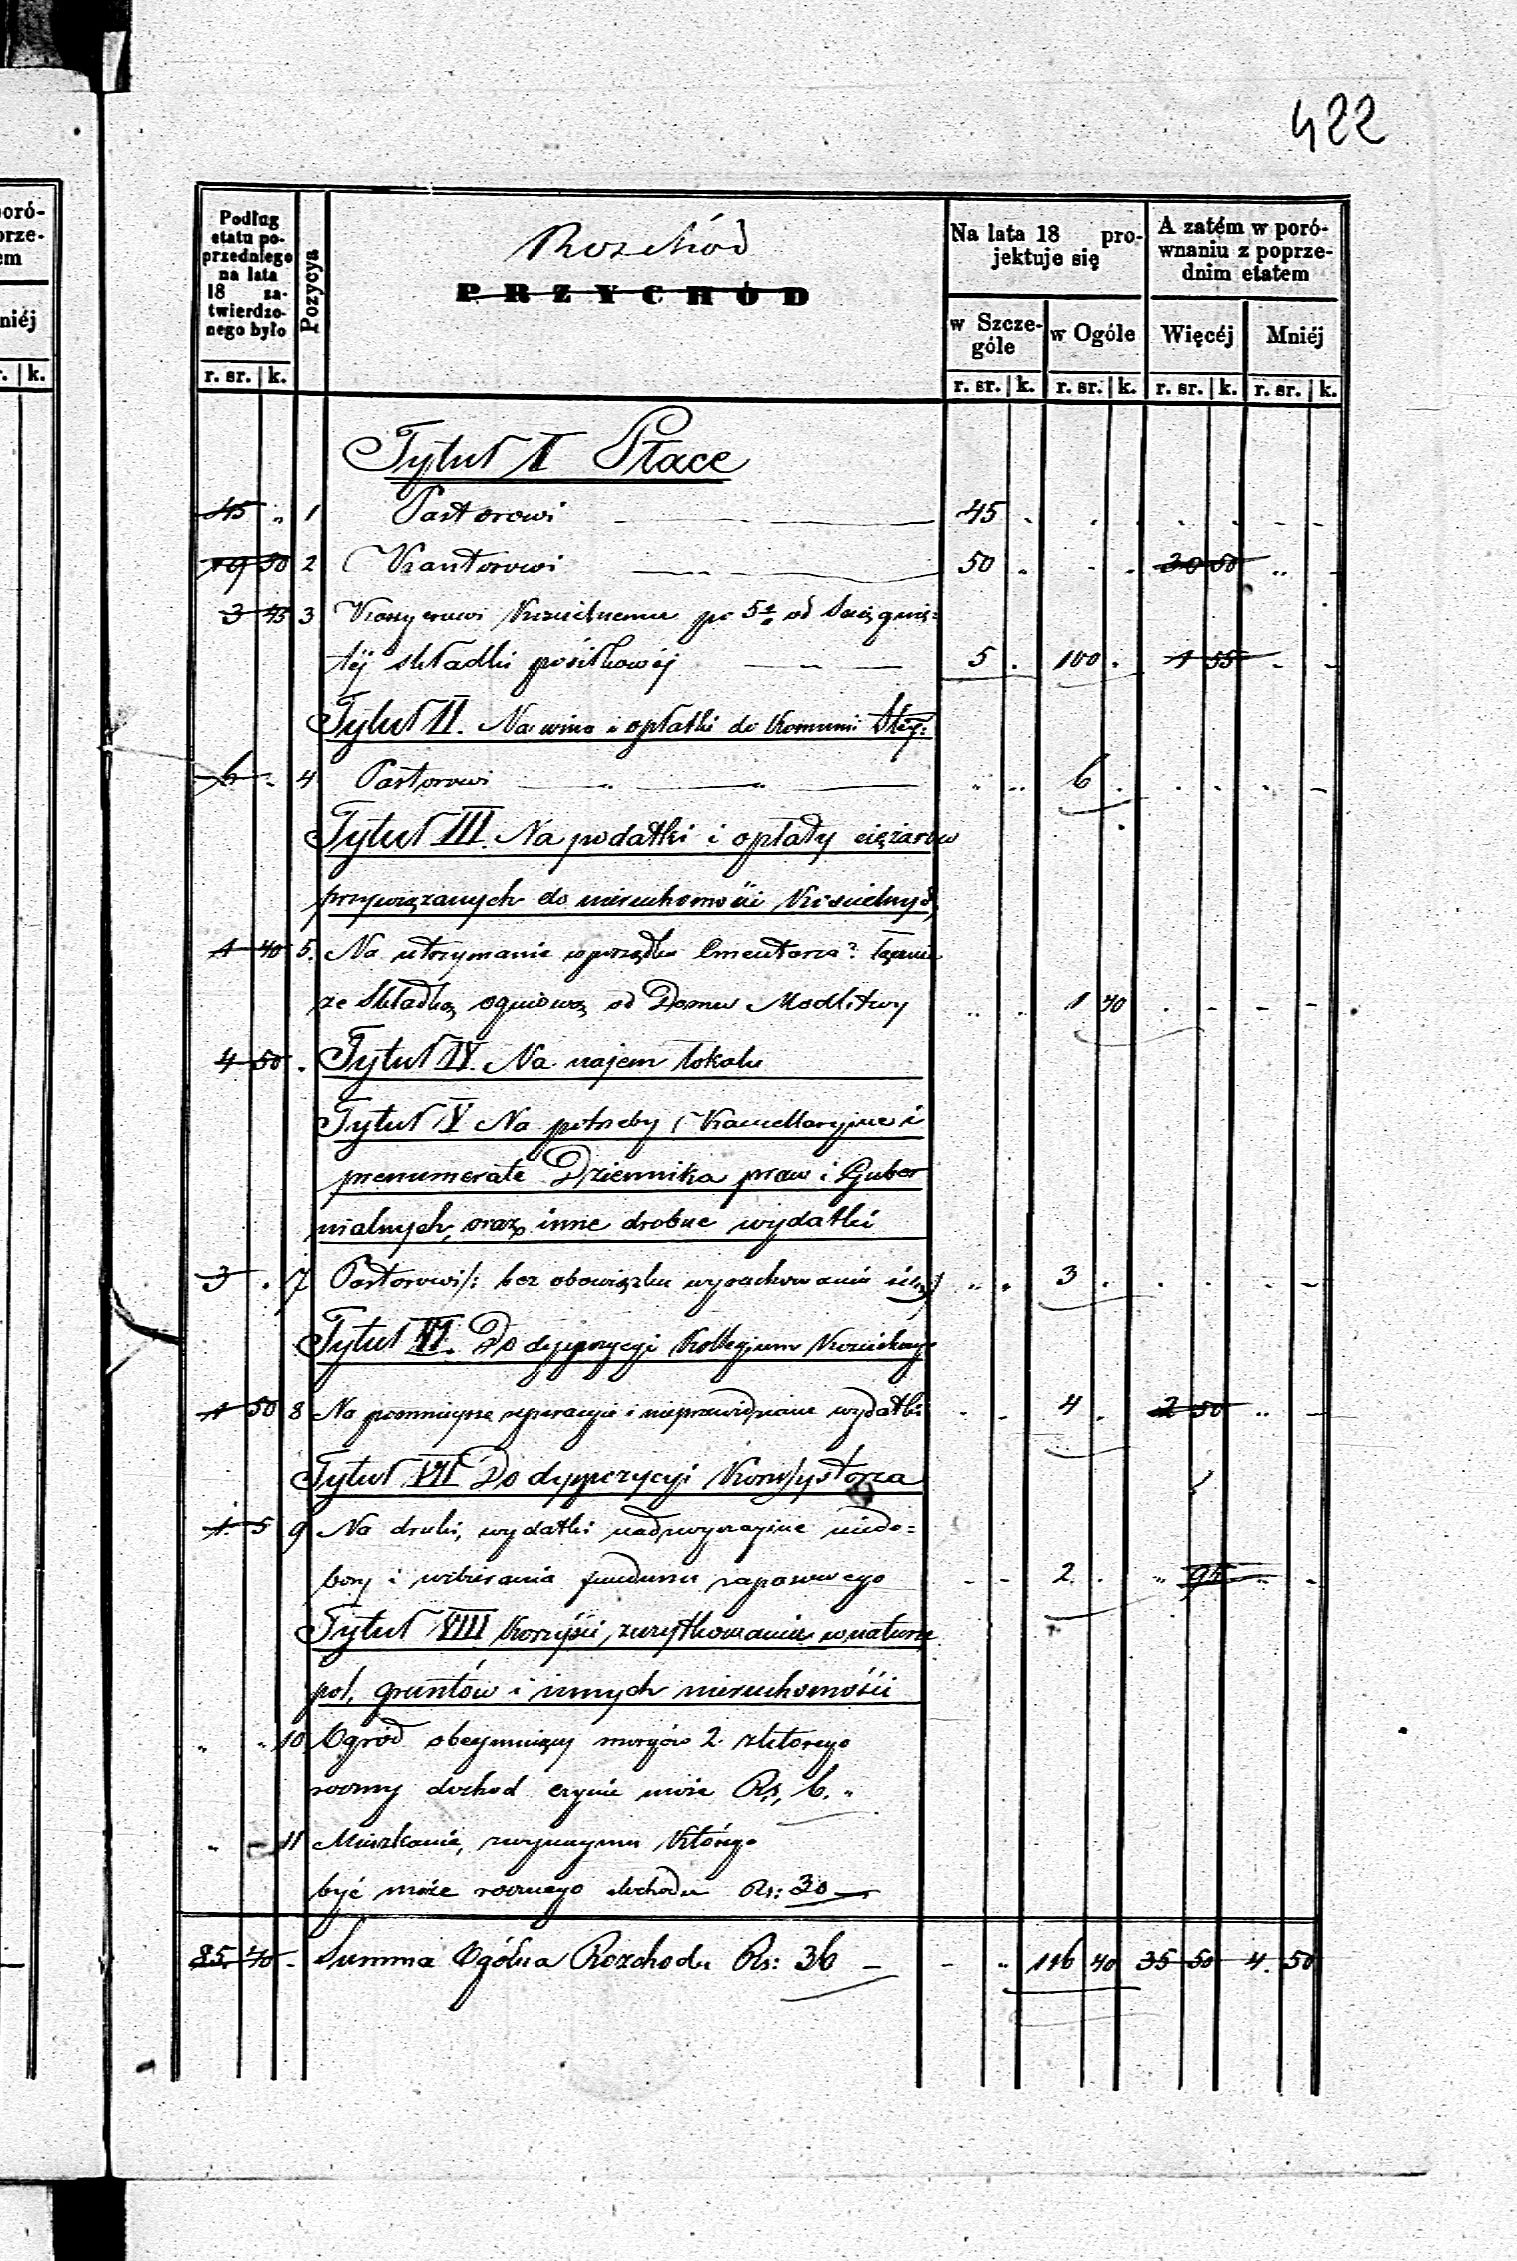 422
oró-
orze-
em
niéj
. k.
Podług
etatu po-
przedniego
na lata
18 za-
twierdzo-
nego było
r. sr. k.
Pozycya
Rozchód
PRZYCHÓD
Na lata 18 pro-
jektuje się
w Szcze-
góle
r. sr. k.
w Ogóle
r. sr. k.
A zatém w poró-
wnaniu z poprze-
dnim etatem
Więcéj
r. sr. k.
Mniéj
r. sr. k.
Tytuł I Płace
45 " 1 Pastorowi 45
19 50 2 Kantorowi 50 30 50
3 45 3 Kassyerowi Kościelnemu po 5 od ściągnię=
téj składki posiłkowéj 5 100 1 55
Tytuł II. Na wino i opłatki do Komunii
6 4 Pastorowi 6
Tytuł III. Na podatki i opłaty ciężarów
przywiązanych do nieruchomości Kościelnych
1 40 5. Na utrzymanie w porządku Cmentarza łącznie
ze składką ogniową od Domu Modlitwy 1 40
4 50 Tytuł IV. Na najem lokalu
Tytuł V Na potrzeby Kancellaryjne i
prenumeratę Dziennika praw i Guber
nialnych, oraz inne drobne wydatki
3 7 Pastorowi /: bez obowiązku wyrachowania się :/ 3
Tytuł VI. Do dyspozycyi Kollegium Kościelnego
1 50 8 Na pomniejsze reperacyje i nieprzewidziane wydatki 4 2 50
Tytuł VII Do dyspozycyi Konsystorza
1 5 9 Na druki, wydatki nadzwyczajne niedo=
bory i wzbierania funduszu zapasowego 2 95
Tytuł VIII Korzyści, z użytkowania w naturze
pól, gruntów i innych nieruchomości
10 Ogród obejmujący morgów 2 z którego
roczny dochód czynić może Rs. 6.
11 Mieszkanie, z wynajmu którego
być może rocznego dochodu Rs: 30
85 40 Summa Ogólna Rozchodu Rs: 36 116 40 35 50 4. 50